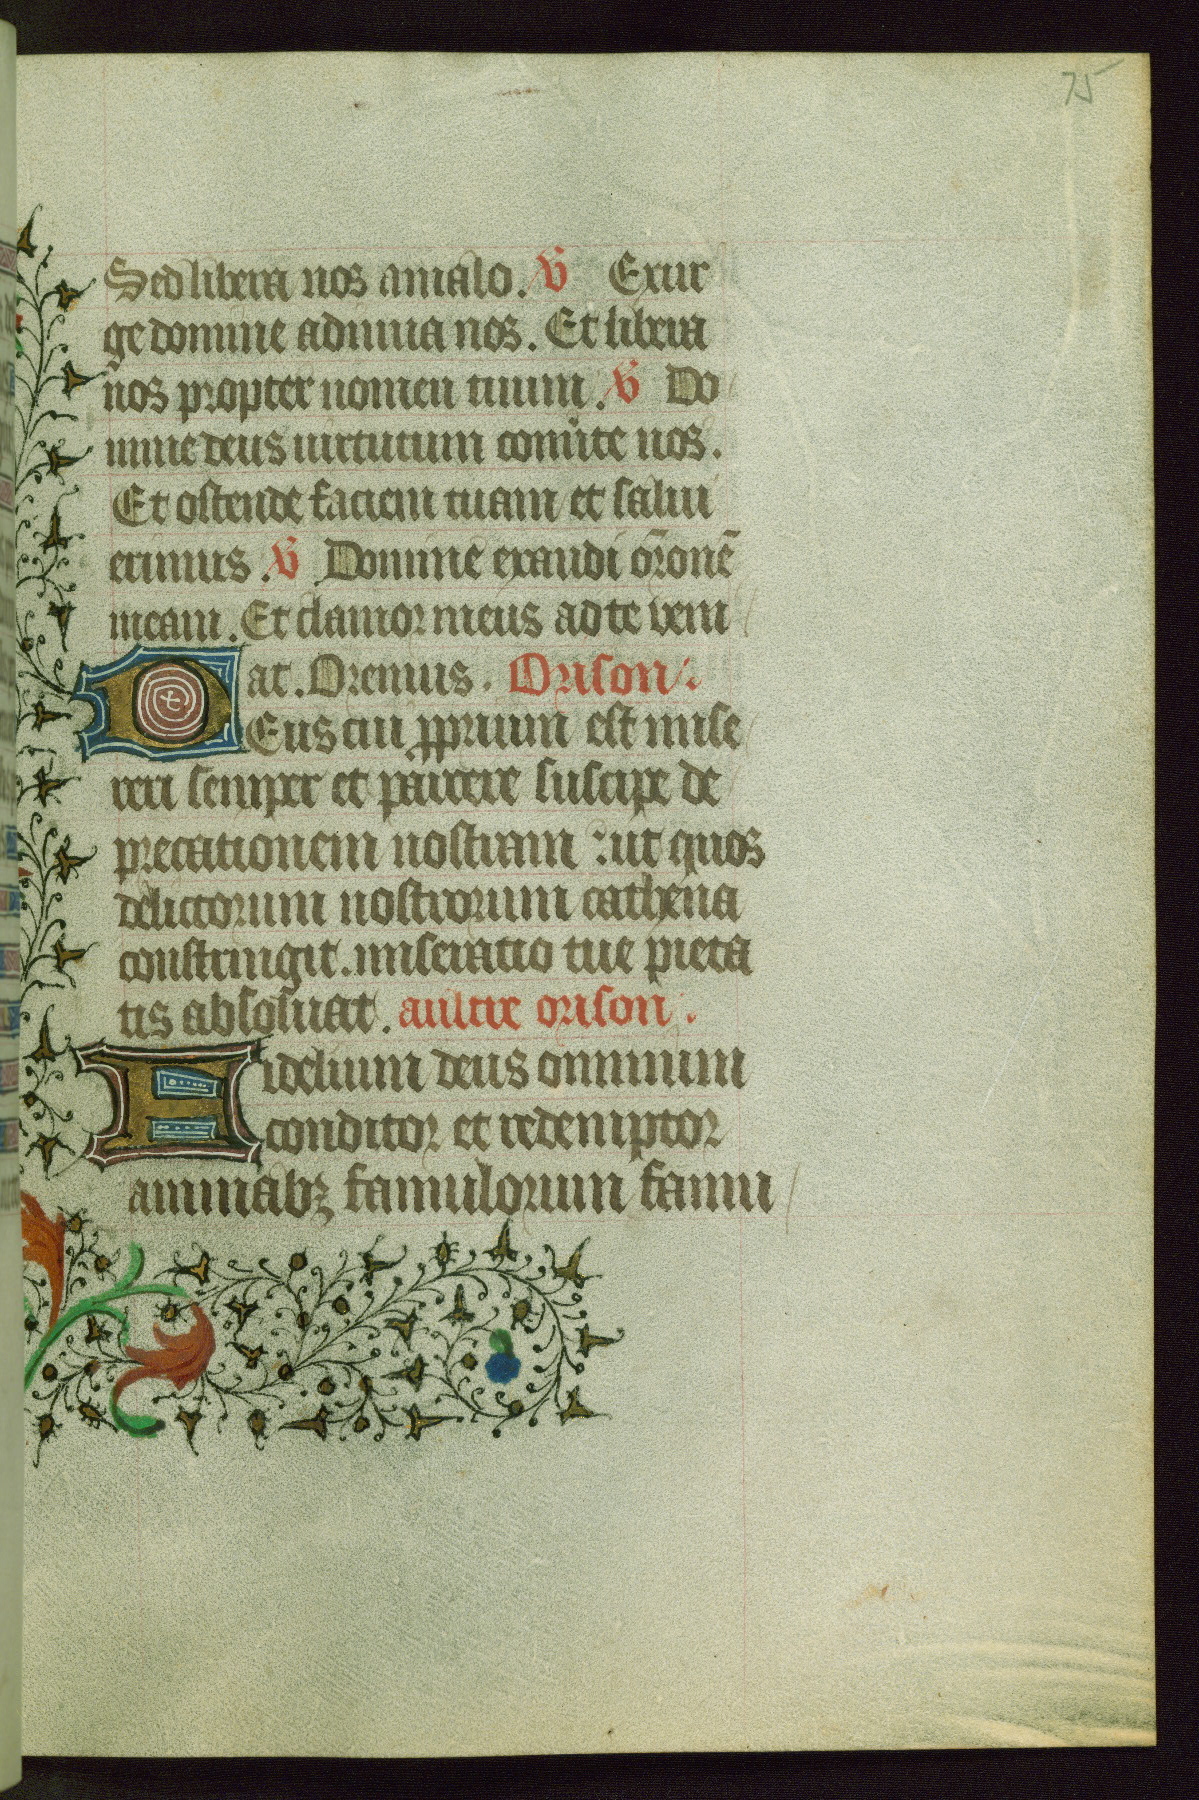 75
Sed libera nos a malo. V Exur
ge domine adiuua nos. Et libera
nos propter nomen tuum. V Do
mine deus uirtutum conuͥte nos.
Et ostende faciem tuam et salui
erimus. V Domine exaudi or̄onē
meam. Et clamor meus ad te veni
at. Oremus. Orison
Deus cui ꝓprium est mise
reri semper et parcere suscipe de
precationem nostram : ut quos
delictorum nostrorum cathena
constringit. miseratio tue pieta
tis absosuat. aultre orison.
Fidelium deus omnium
conditor et redemptor
animabꝫ famulorum famu